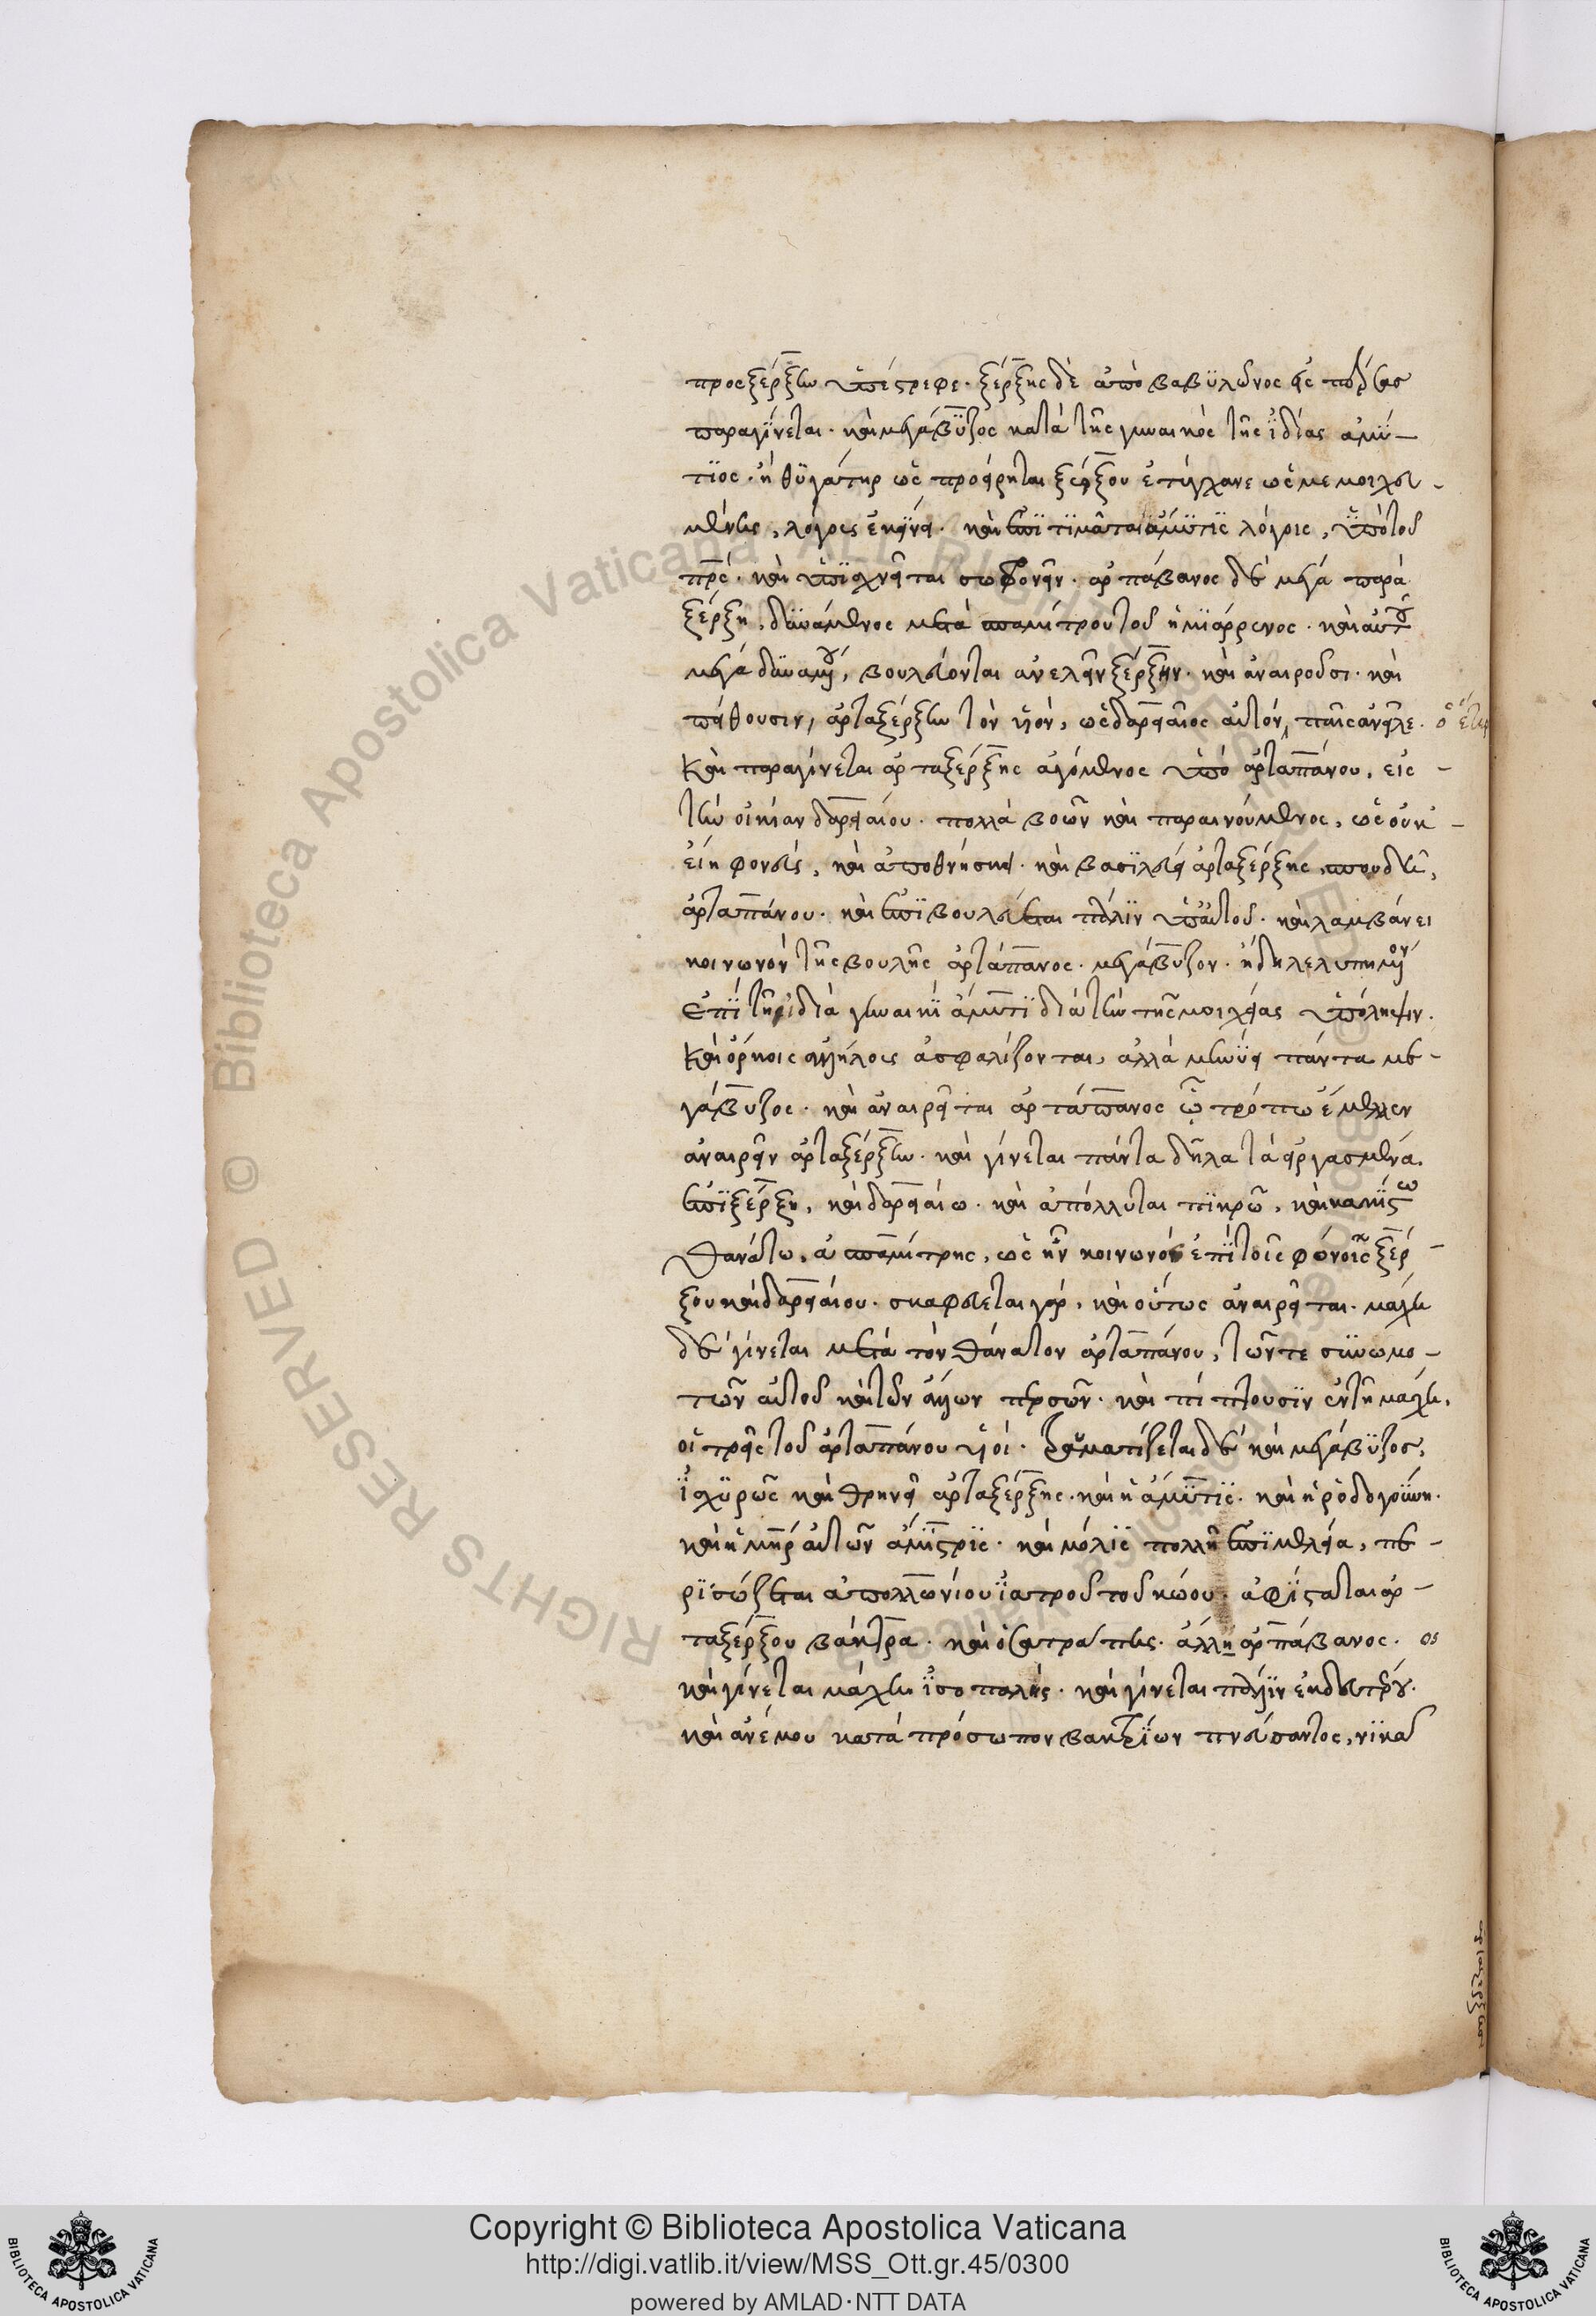 προς ξέρξην ὑπέστρεφε. ξέρξης δὲ ἀπὸ βαβϋλῶνος εἰς πέρσας
παραγίνεται. καὶ μεγάβϋζος κατὰ τῆς γυναικὸς τῆς ἰδίας αμϋ-
τϊος. ἡ θϋγάτηρ ὡς προείρηται ξέρξου ἐτύγχανε ὡς μεμοιχευ-
μένης, λόγους ἐκίνει. καὶ ἐπϊτϊμᾶται ἄμϋτϊς λόγοις, ὑπὸ τοῦ
πρς. καὶ ὑπϊσχνεῖται σωφρονεῖν. ἀρτάβανος δὲ μέγα παρὰ
ξέρξῃ, δϋνάμενος μετὰ ασπαμίτρου τοῦ ἡμιάρρενος. καὶ αὐτοῦ
μέγα δϋναμένου, βουλεύονται ἀνελεῖν ξέρξην. καὶ ἀναιροῦσι. καὶ
πείθουσιν, ἀρταξέρξην τὸν υἱὸν, ὡς δαρειαῖος αὐτὸν παῖς ἀνεῖλε.
Καὶ παραγίνεται ἀρταξέρξης αγόμενος ὑπὸ ἀρταπάνου, εις
τὴν οἰκίαν δαρειαίου. πολλὰ βοῶν καὶ παραινούμενος, ὡς οὐκ
εἴη φονεὺς, καὶ ἀποθνήσκει. καὶ βασϊλεύει ἀρταξέρξης, σπουδῇ,
ἀρταπάνου. καὶ ἐπϊβουλεύεται πάλϊν ὑπ᾽ αὐτοῦ. καὶ λαμβάνει
κοινωνὸν τῆς βουλῆς ἀρτάπανος. μεγάβυζον. ἤδη λελυπημένον
ἐπϊ τῇ ἰδίᾳ γυναικϊ ἀμύτϊ διὰ τὴν τῆς μοιχείας ὑπόληψιν.
Καὶ ὅρκοις ἀλλήλους ἀσφαλίζονται, ἀλλὰ μηνϋει πάντα με-
γάβυζος. καὶ ἀναιρεῖται ἀρτάπανος ᾧ τρόπω ἔμελλεν
ἀναιρεῖν ἀρταξέρξην. καὶ γίνεται πάντα δῆλα τὰ εἰργασμένα.
ἐπϊ ξέρξῃ, καὶ δαρειαίω. καὶ ἀπόλλυται πϊκρῶ, καὶ κακίστω
Θανάτω, ἀσπαμίτρης, ὡς ἦν κοινωνὸς ἐπϊ τοῖς φόνοις ξέρ-
ξου καὶ δαρειαίου. σκαφεύεται γὰρ, καὶ οὕτως ἀναιρεῖται. μάχη
δὲ γίνεται μετὰ τὸν θάνατον ἀρταπάνου, τῶν τε συνωμο-
τῶν αὐτοῦ καὶ τῶν ἄλλων περσῶν. καὶ πίπτουσϊν ἐν τῇ μάχῃ,
οἱ τρεῖς τοῦ ἀρταπάνου υἱοί. τραυματίζεται δὲ καὶ μεγάβϋζος,
ἰσχϋρῶς καὶ θρηνεῖ ἀρταξέρξης. καὶ ἡ ἄμϋτϊς. καὶ ἡ ῥοδογούνη.
καὶ ἡ μηρ αὐτῶν ἄμϊστρϊς. καὶ μόλϊς πολλῇ ἐπϊμελεία, πε-
ρϊσώζεται ἀπολλωνίου ἰατροῦ τοῦ κώου. ἀφϊσταται ἀρ-
ταξέρξου βάκτρα. καὶ ὁ σατράπης. ἄλλη ἀρτάβανος. ος
καὶ γίνεται μάχη ἰσοπαλὴς. καὶ γίνεται πάλϊν ἐκ δευτέρου.
καὶ ἀνέμου κατὰ πρόσωπον βακτρϊων πνεύσαντος, νϊκᾶ